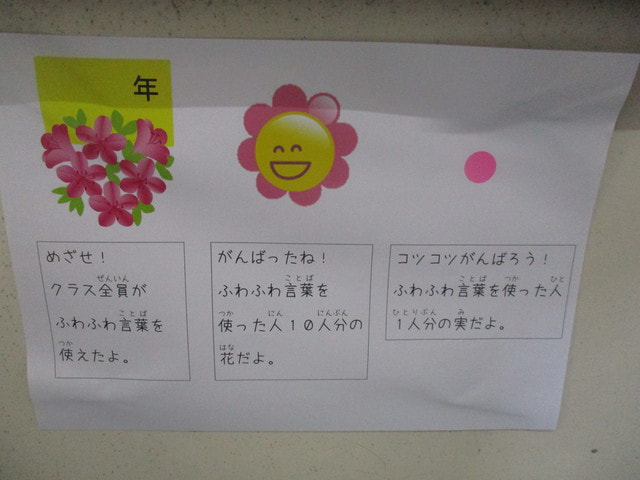 年
めざせ！
ぜんいん
クラス全員が
ことば
ふわふわ言葉を
つか
使えたよ。
がんばったね！
ことば
ふわふわ言葉を
つか にん にんぶん
使った人１０人分の
はな
花だよ。
コツコツがんばろう！
ことば つか ひと
ふわふわ言葉を使った人
ひとりぶん み
１人分の実だよ。